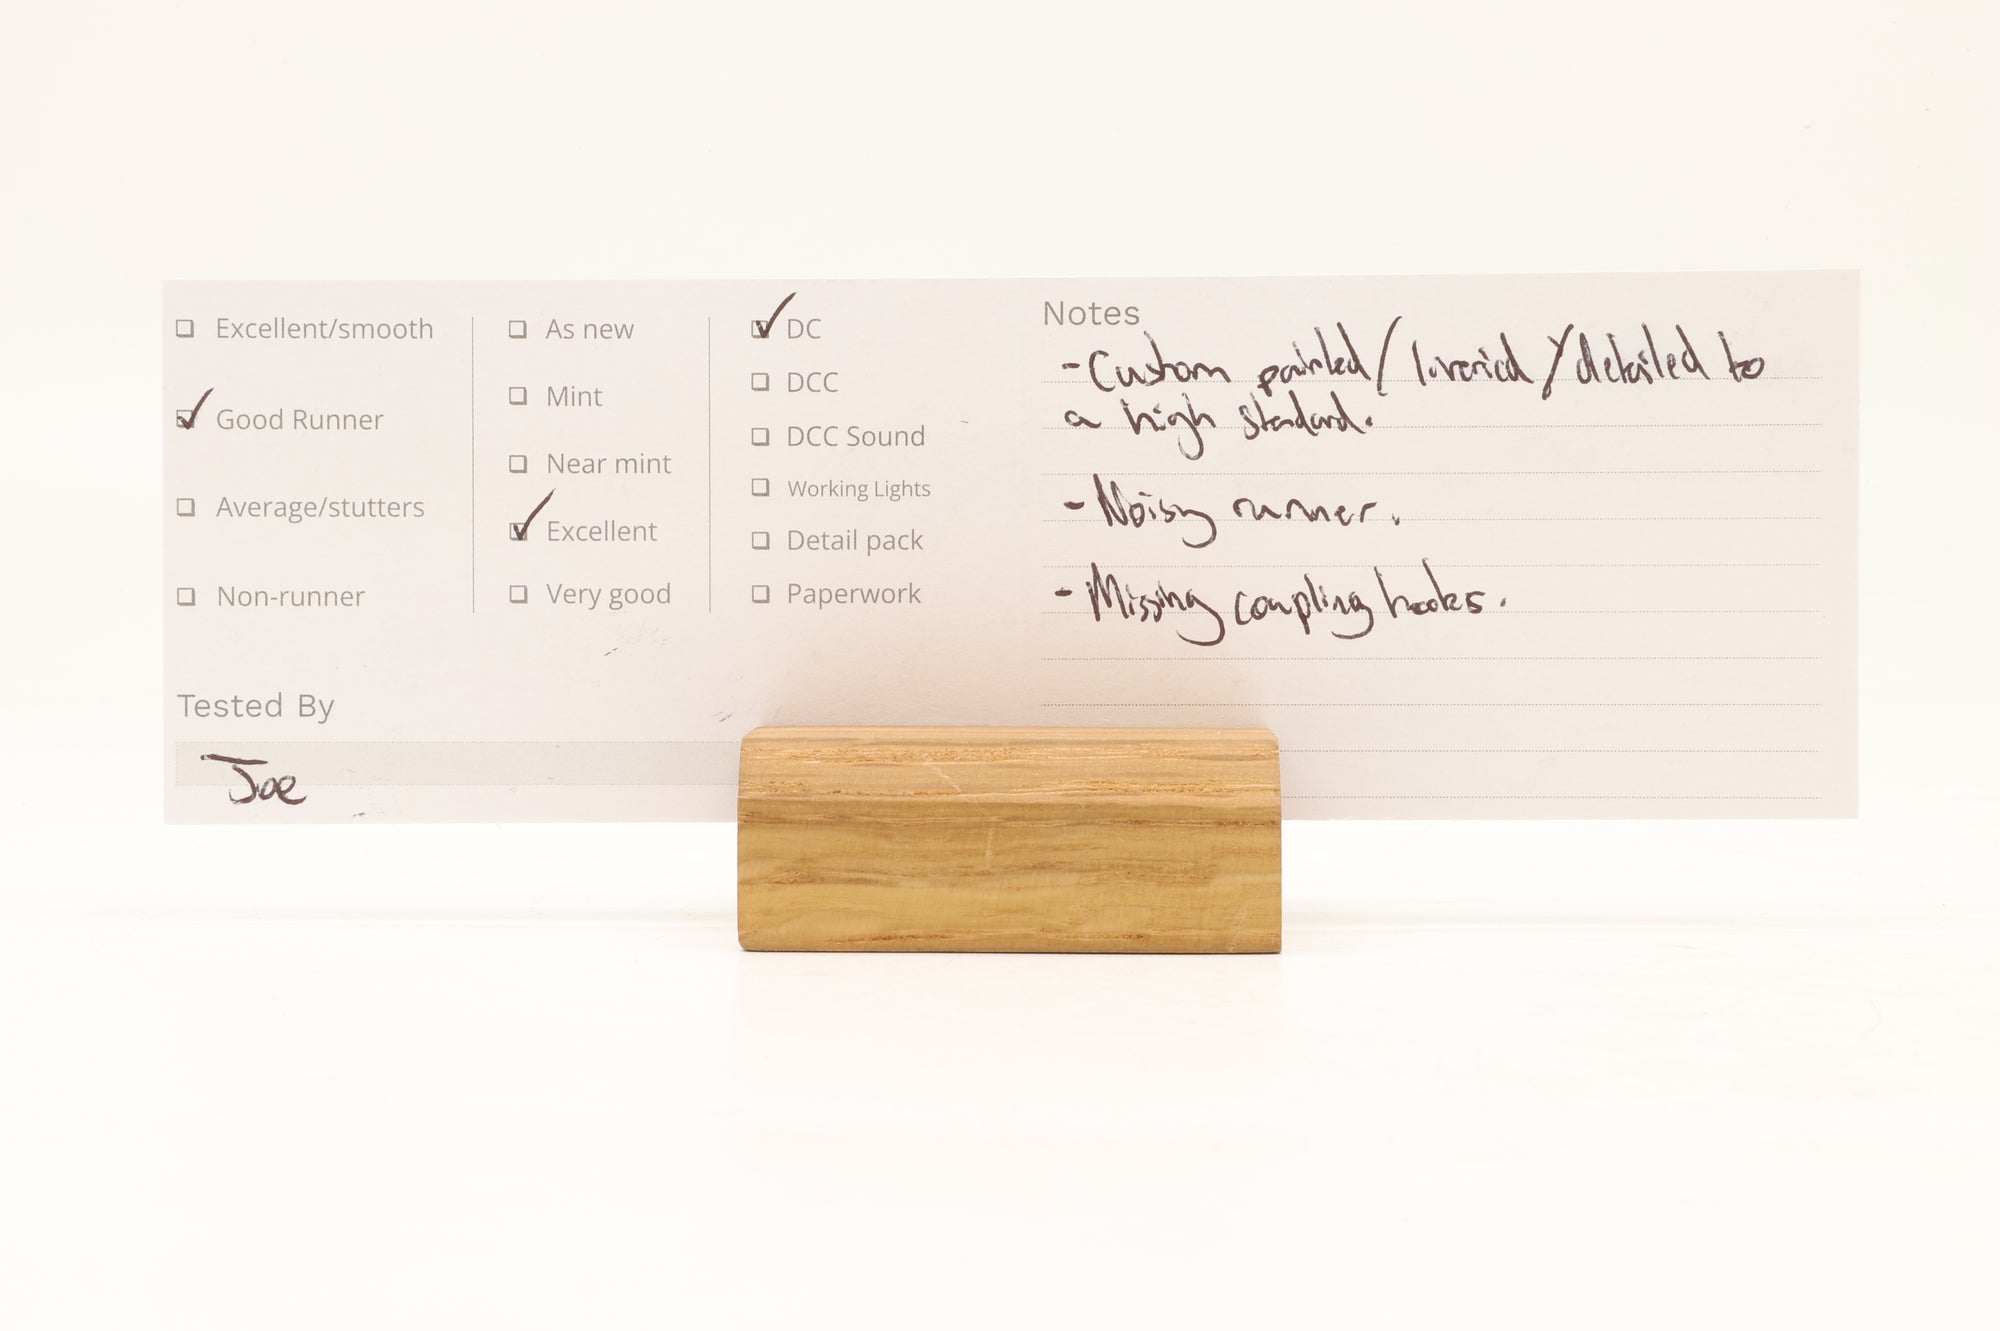 Excellent/smooth
Good Runner
Average/stutters
Non-runner
As new
Mint
Near mint
Excellent
Very good
DC
DCC
DCC Sound
Working Lights
Detail pack
Paperwork
Tested By
Joe
Notes
- Custom painted / liveried / detailed to
a high standard.
- Noisy runner.
- Missing coupling hooks.